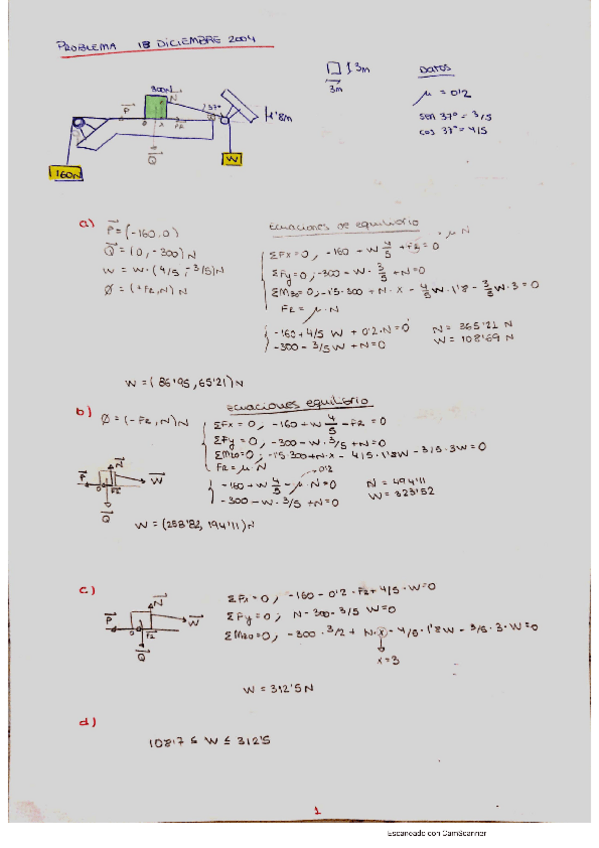 PROBLEMA 18 DICIEMBRE 2004
3m
3m
DATOS
μ = 0'2
sen 37° = 3/5
cos 37° = 4/5
300N
N
P
37°
1'8m
O
x
FR
Q
W
160N
a)
P = (-160,0)
Q = (0, -300) N
W = W·(4/5, -3/5)N
Ø = (+FR, N) N
Ecuaciones de equilibrio
μN
ΣFx=0, -160 - W 4/5 + FR = 0
ΣFy=0, -300 - W· 3/5 + N=0
ΣMzo=0, -1'5·300 + N·x - 4/5 W·1'8 - 3/5 W·3 = 0
FR = μ·N
-160 + 4/5 W + 0'2·N=0
-300 - 3/5 W + N=0
N = 365'21 N
W = 108'69 N
W = (86'95, 65'21) N
b)
Ø = (-FR, N) N
Ecuaciones equilibrio
ΣFx = 0, -160 + W 4/5 - FR = 0
ΣFy = 0, -300 - W· 3/5 + N=0
ΣMzo=0, -1'5·300 + N·x - 4/5·1'8W - 3/5·3W=0
FR = μ·N
0'2
-160 + W 4/5 - μ·N=0
-300 - W· 3/5 + N=0
N = 494'11
W = 323'52
P
N
W
O
FR
Q
W = (258'82, 194'11) N
c)
P
N
W
O
FR
Q
ΣFx=0, -160 - 0'2·FR + 4/5·W=0
ΣFy=0; N - 300 - 3/5 W=0
ΣMzo=0, -300· 3/2 + N·x - 4/5·1'8W - 3/5·3·W=0
x=3
W = 312'5 N
d)
108'7 ≤ W ≤ 312'5
1
Escaneado con CamScanner